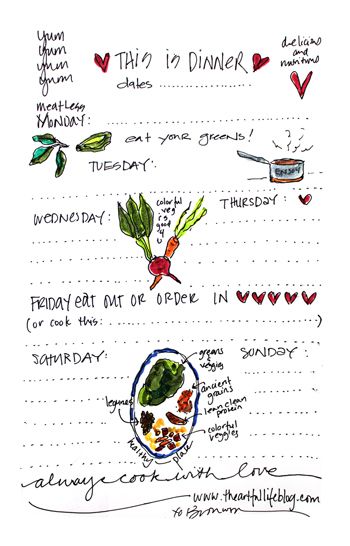 yum
yum
yum
yum
THIS IS DINNER
delicious
and
nutritious
dates
meatless
MONDAY:
eat your greens!
ENJOY
TUESDAY:
colorful
veg
is
good
4
U
THURSDAY:
WEDNESDAY:
FRIDAY eat OUT OR ORDER IN
(or cook this:
)
SATURDAY:
SUNDAY:
greens
&
veggies
ancient
grains
lean clean
protein
legumes
colorful
veggies
healthy plate
always cook with love
www.theartfullifeblog.com